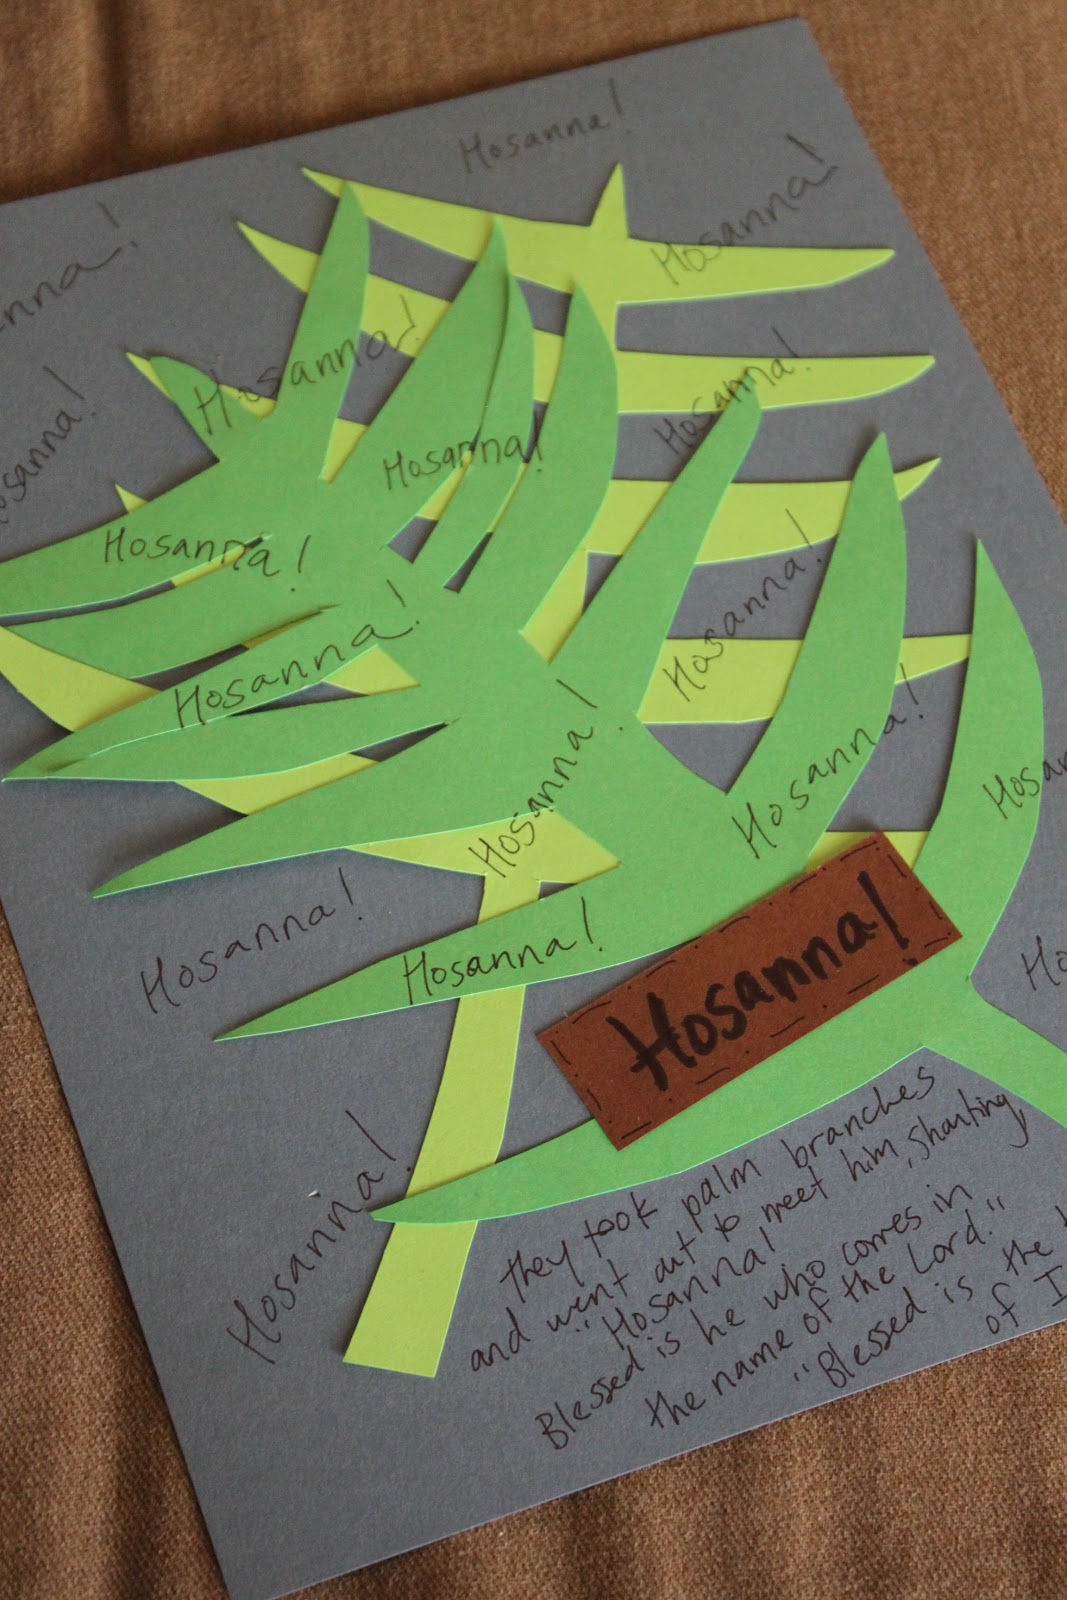 Hosanna!
Hosanna!
nna!
Hosanna!
Hosanna!
Hosanna!
Hosanna!
Hosanna!
Hosanna!
Hosanna!
Hosanna!
Hosanna!
Hosanna!
Hosan
Hosanna!
Hosanna!
Hosanna!
Ho
Hosanna!
they took palm branches
and went out to meet him, shouting,
"Hosanna!
Blessed is he who comes in
the name of the Lord."
"Blessed is the
of I